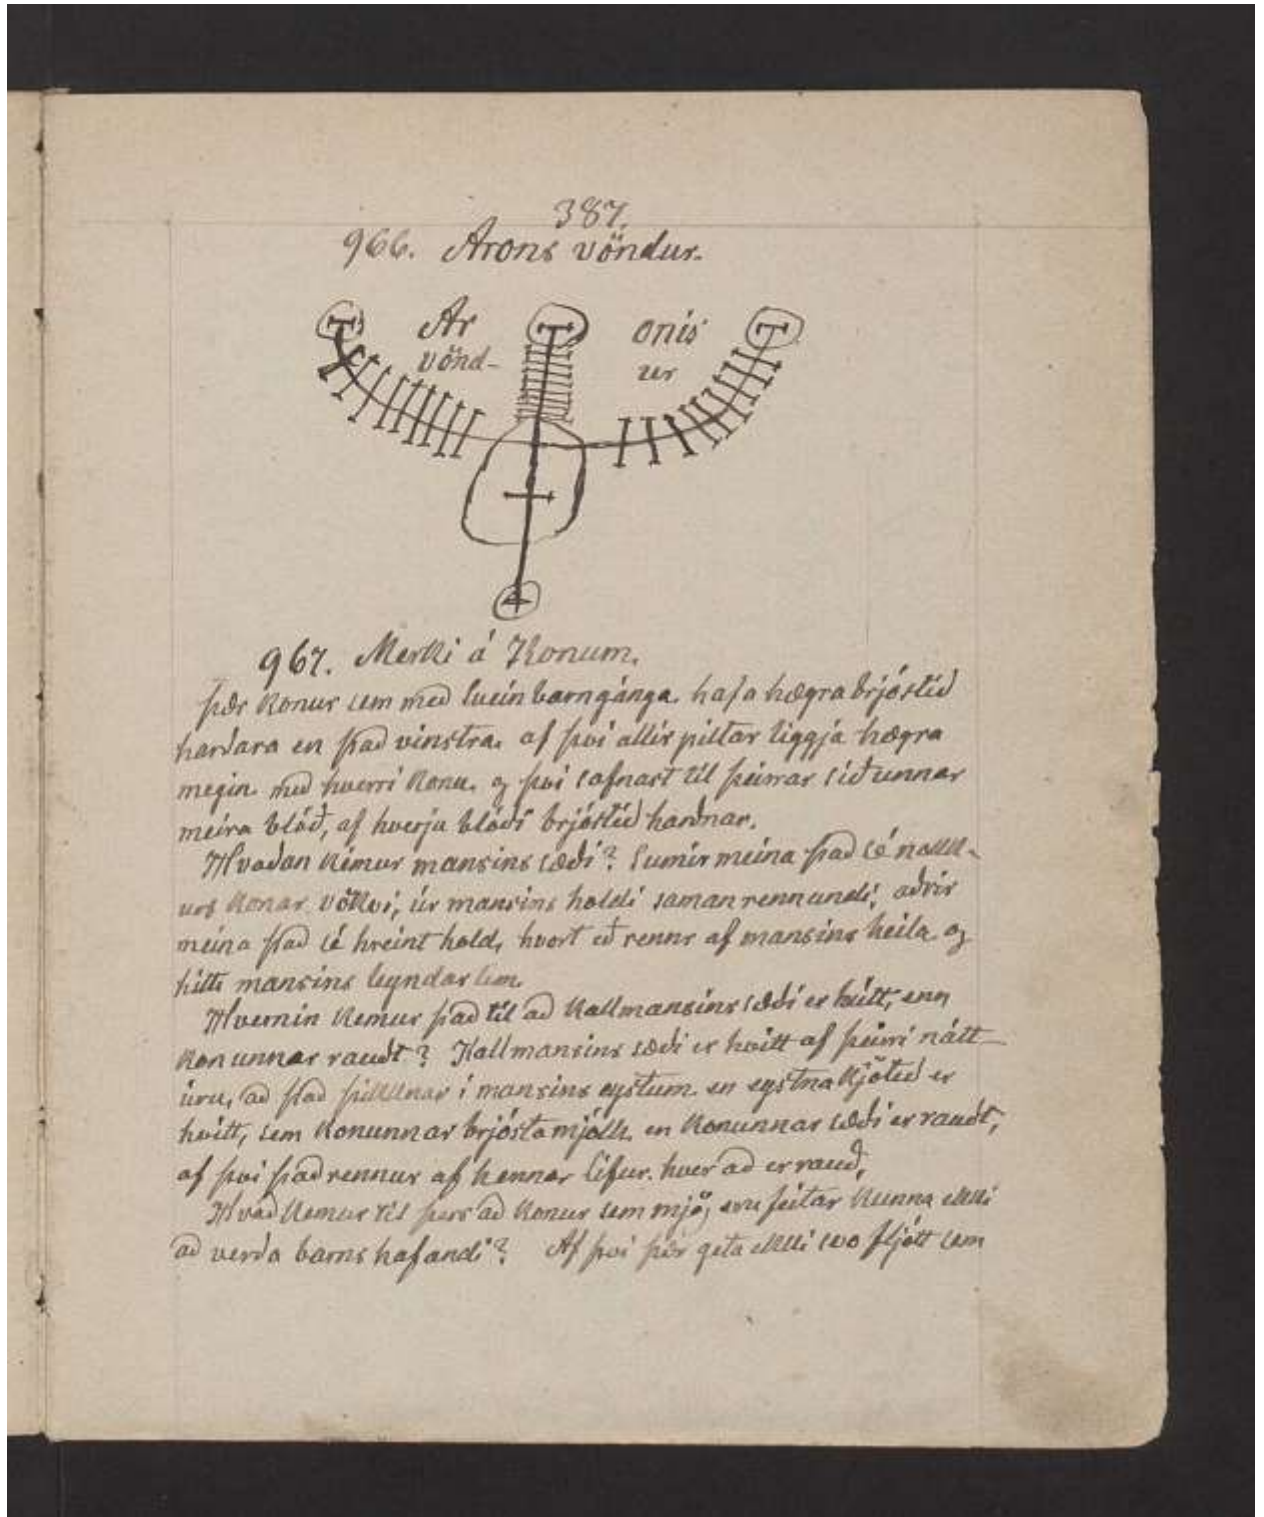 387.
966. Arons vöndur.
Ar onis
vönd- ur
967. Merki á Konum.
þær konur sem með sveinbarn gánga hafa hægra brjóstið
harðara en það vinstra. af því allir piltar liggja hægra
megin með hverri konu. og því safnast til þeirrar síðunnar
meira blóð, af hverju blóði brjóstið harðnar.
Hvaðan kémur mansins sæði? Sumir meina það sé nokk-
urs konar vökvi, úr mansins holdi saman rennandi, aðrir
meina það sé hreint hold, hvort eð rennr af mansins heila og
hitti mansins leyndar lim.
Hvernin kemur það til að kallmansins sæði er hvítt, enn
konunnar rautt? Kallmansins sæði er hvítt af þeirri nátt-
úru, að það þikknar í mansins eystum en eystna kjötið er
hvítt, sem konunnar brjósta mjólk, en konunnar sæði er rauðt,
af því það rennur af hennar lifur. hver að er rauð,
Hvað kemur til þess að konur sem mjög eru feitar kunna ekki
að verða barns hafandi? Af því þær geta ekki svo fljótt sem